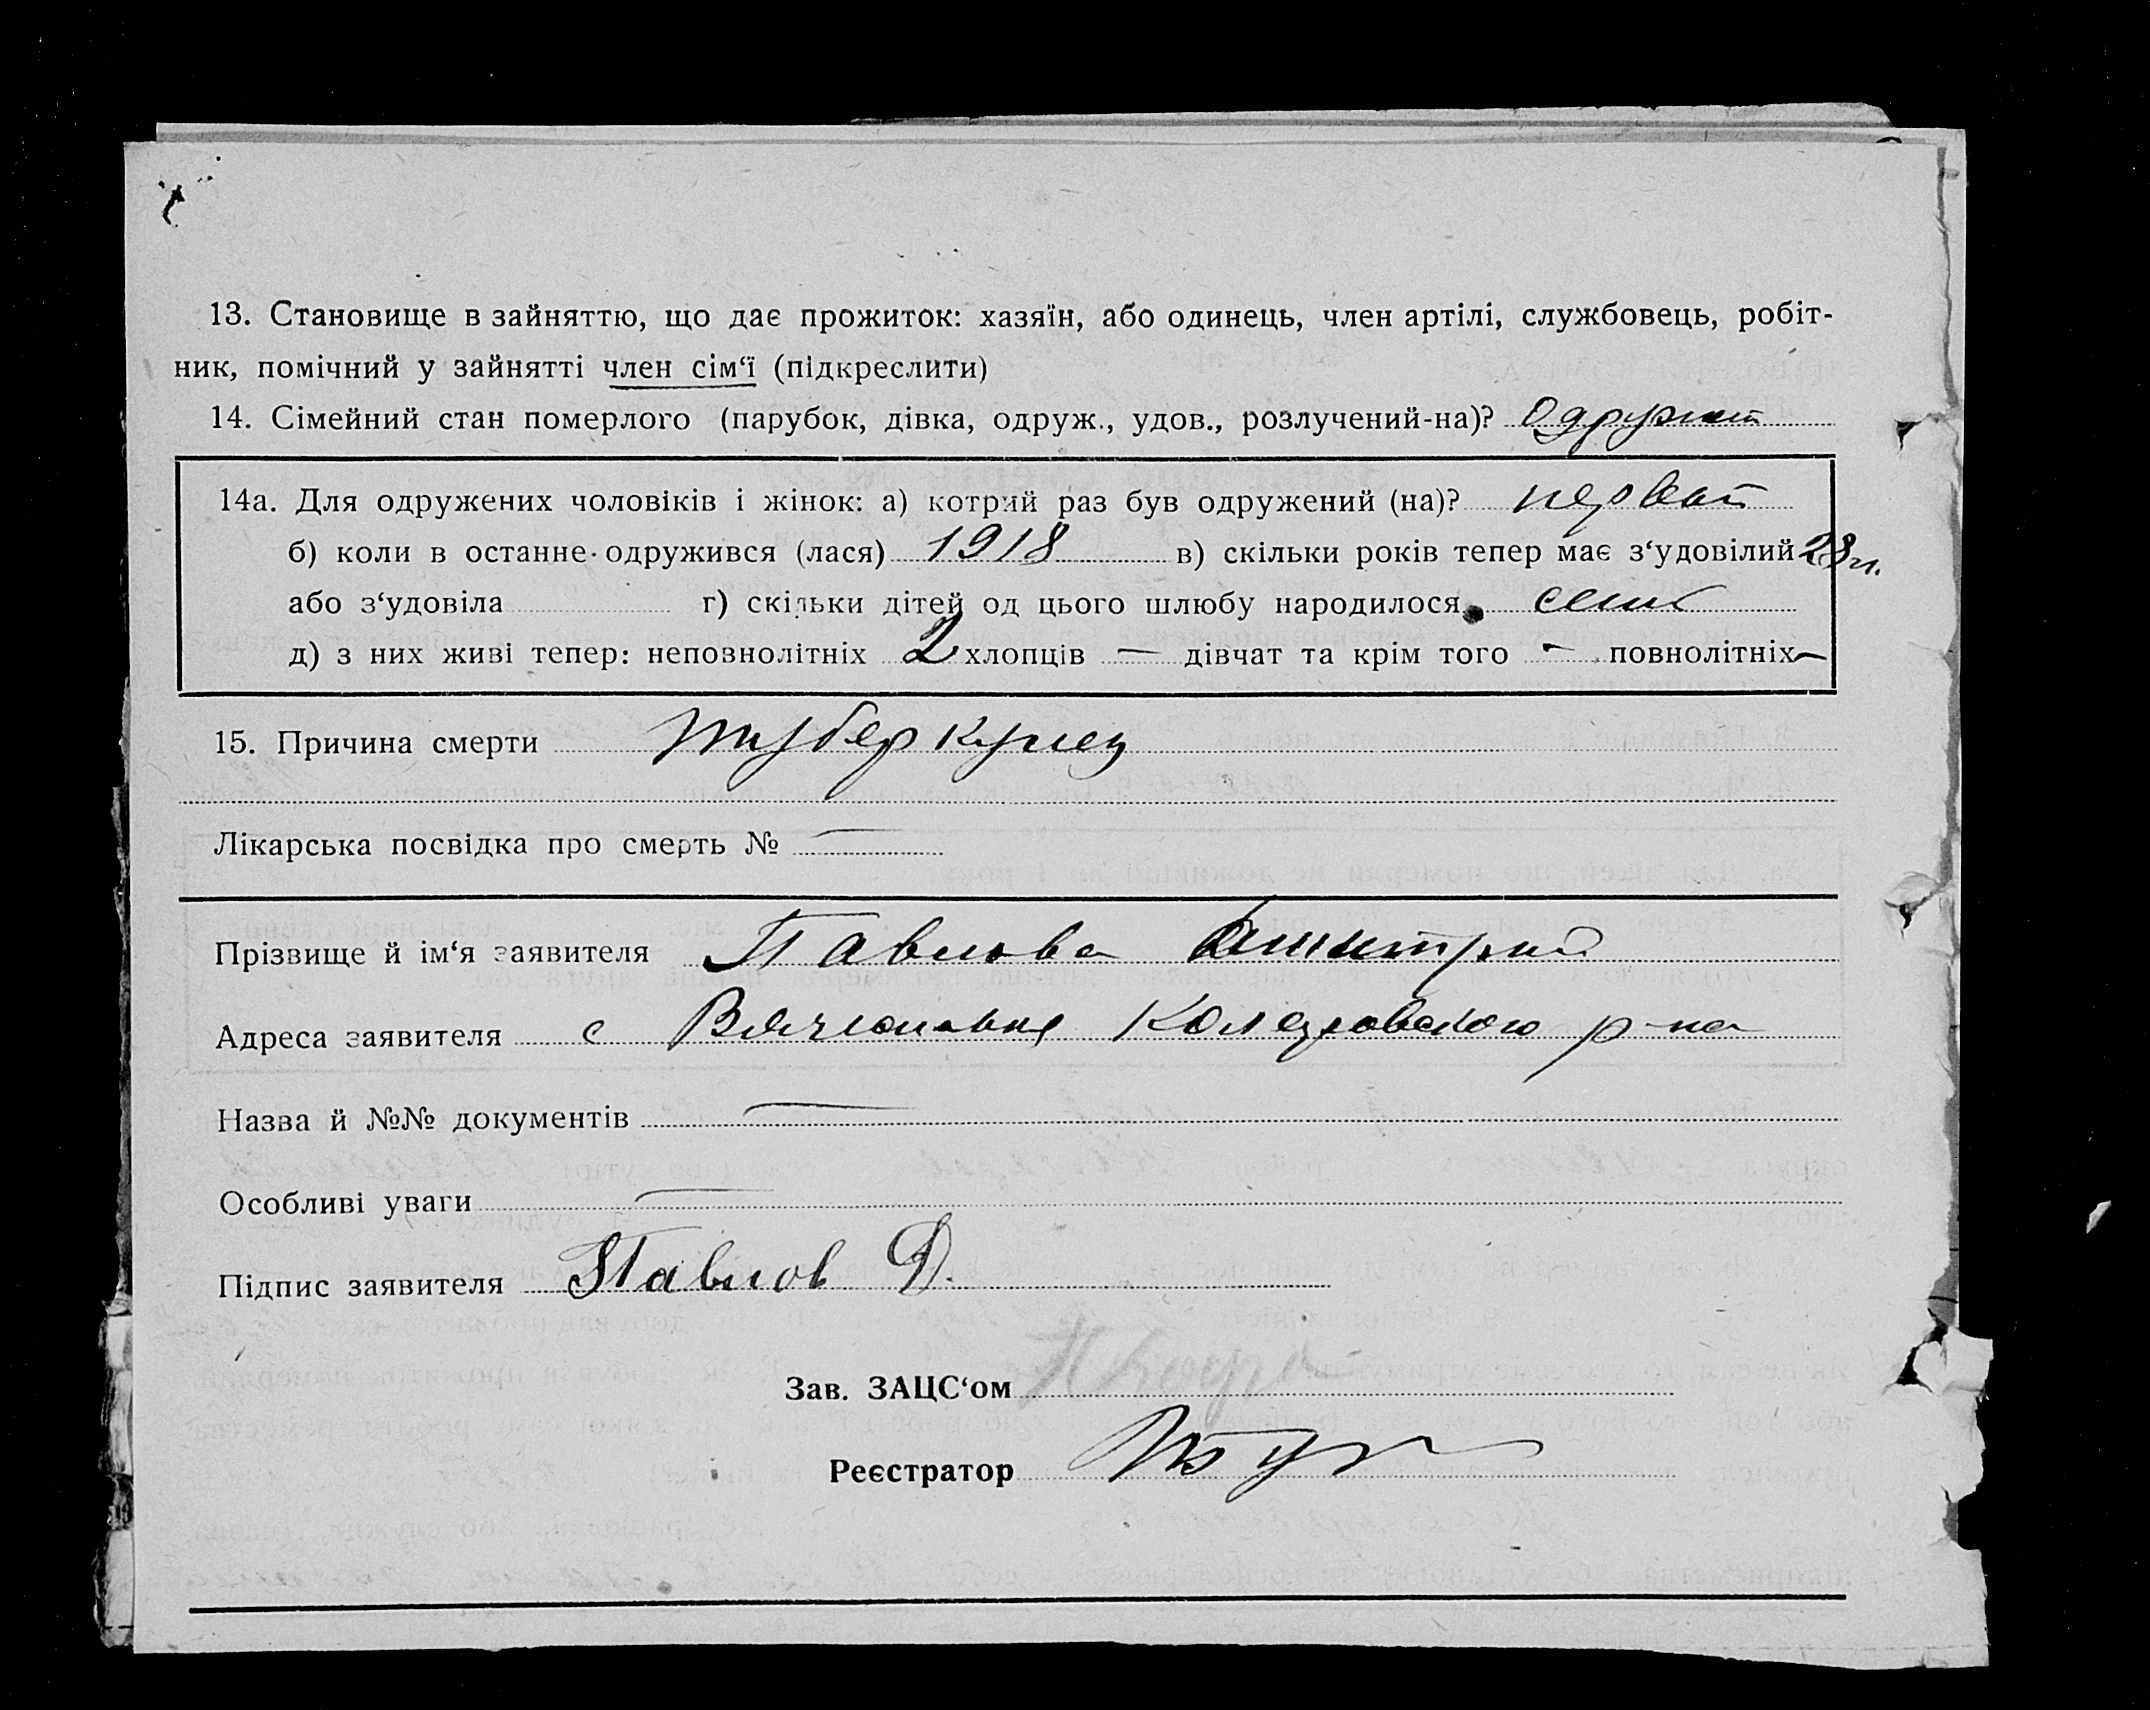 13. Становище в зайняттю, що дає прожиток: хазяїн, або одинець, член артілі, службовець, робіт-
ник, помічний у зайнятті член сім‘ї (підкреслити)
14. Сімейний стан померлого (парубок, дівка, одруж., удов., розлучений-на)?
14а. Для одружених чоловіків і жінок: а) котрий раз був одружений (на)? первий
б) коли в останне одружився (лася) 1918 в) скільки років тепер має з‘удовілий 28 л.
або з‘удовіла г) скільки дітей од цього шлюбу народилося
д) з них живі тепер: неповнолітніх 2 хлопців — дівчат та крім того — повнолітніх —
15. Причина смерти туберкулез
Лікарська посвідка про смерть № —
Прізвище й ім‘я заявителя Павлова Дмитрий
Адреса заявителя с р-на
Назва й №№ документів —
Особливі уваги —
Підпис заявителя Павлов Д.
Зав. ЗАЦС‘ом
Реєстратор